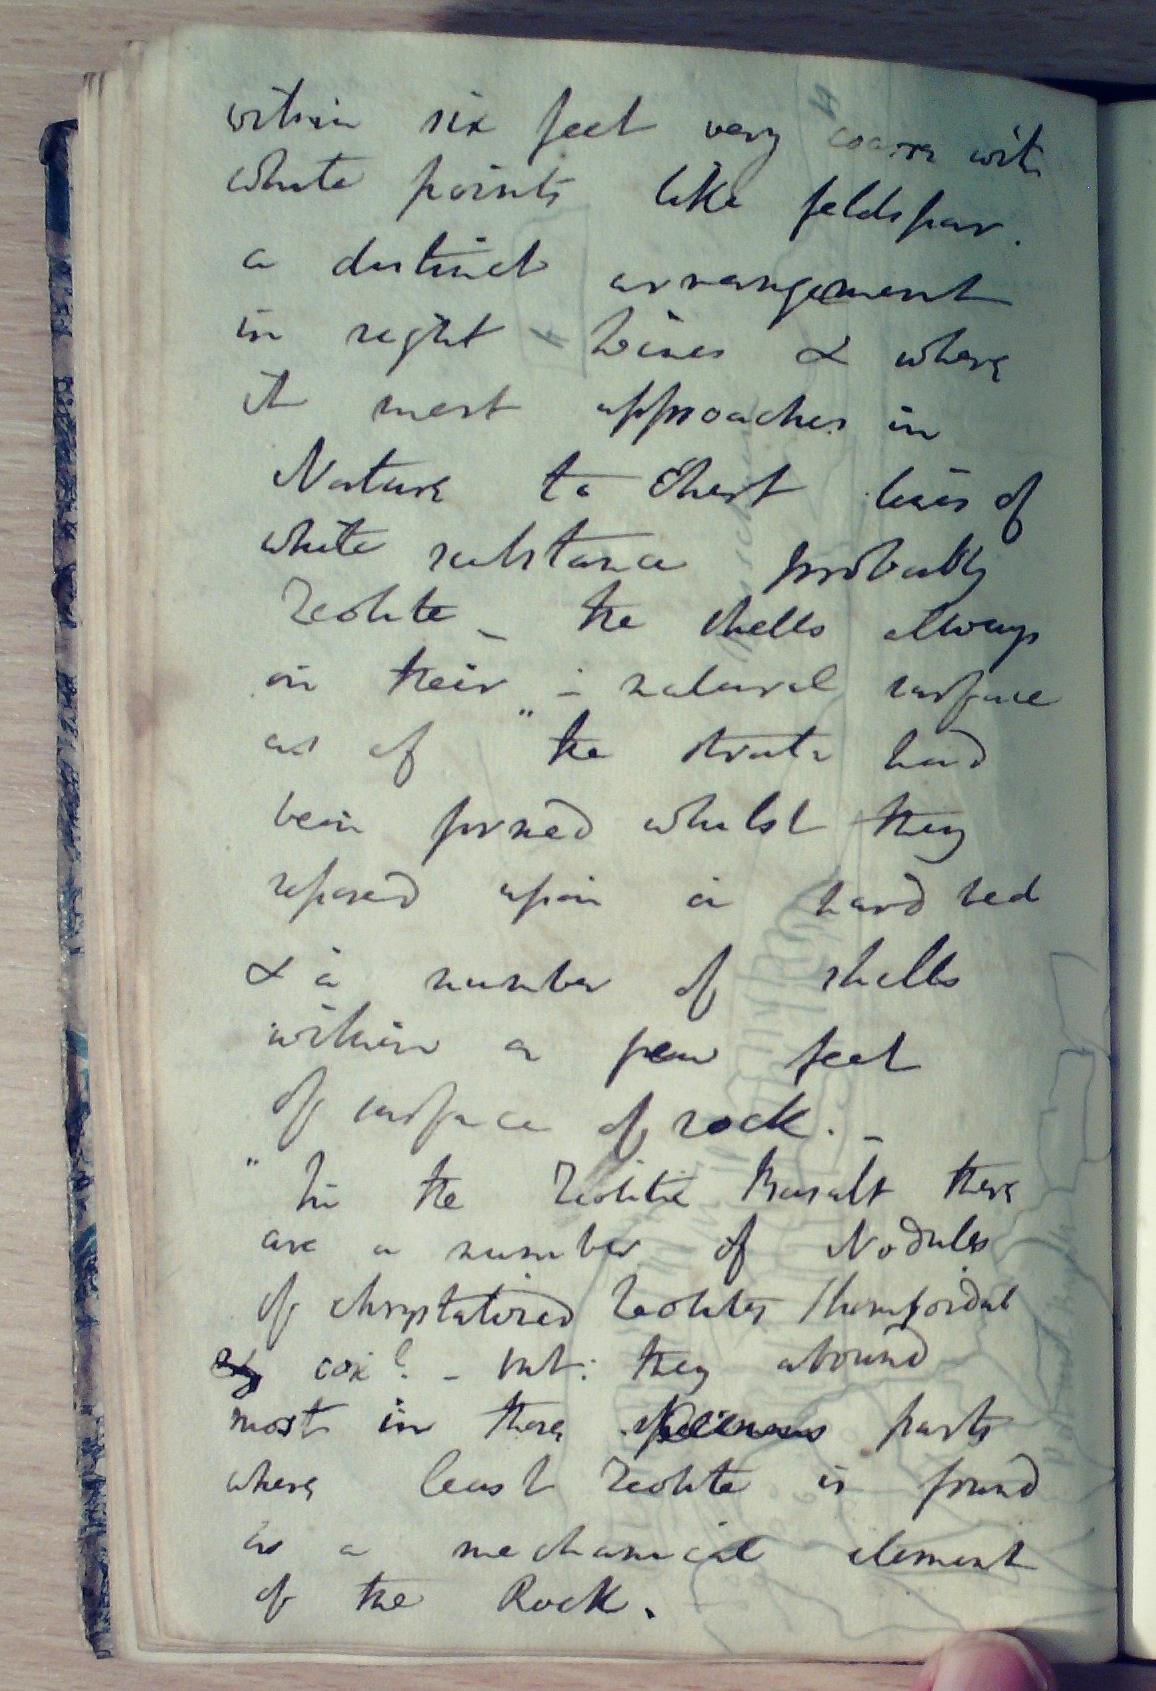 within six feet very coarse with
white points like feldspar.
a distinct arrangement
in right lines & where
it most approaches in
Nature to Chert lines of
white substance probably
Zeolite _ the shells always
on their - natural surface
as if " the strata had
been formed whilst they
reposed upon a hard bed
& a number of shells
within a few feet
of surface of rock. _
" In the Zeolitic Basalt there
are a number of Nodules
of chrystalized Zeolites
_ but: they abound
most in those parts
where least Zeolite is found
as a mechanical element
of the Rock.